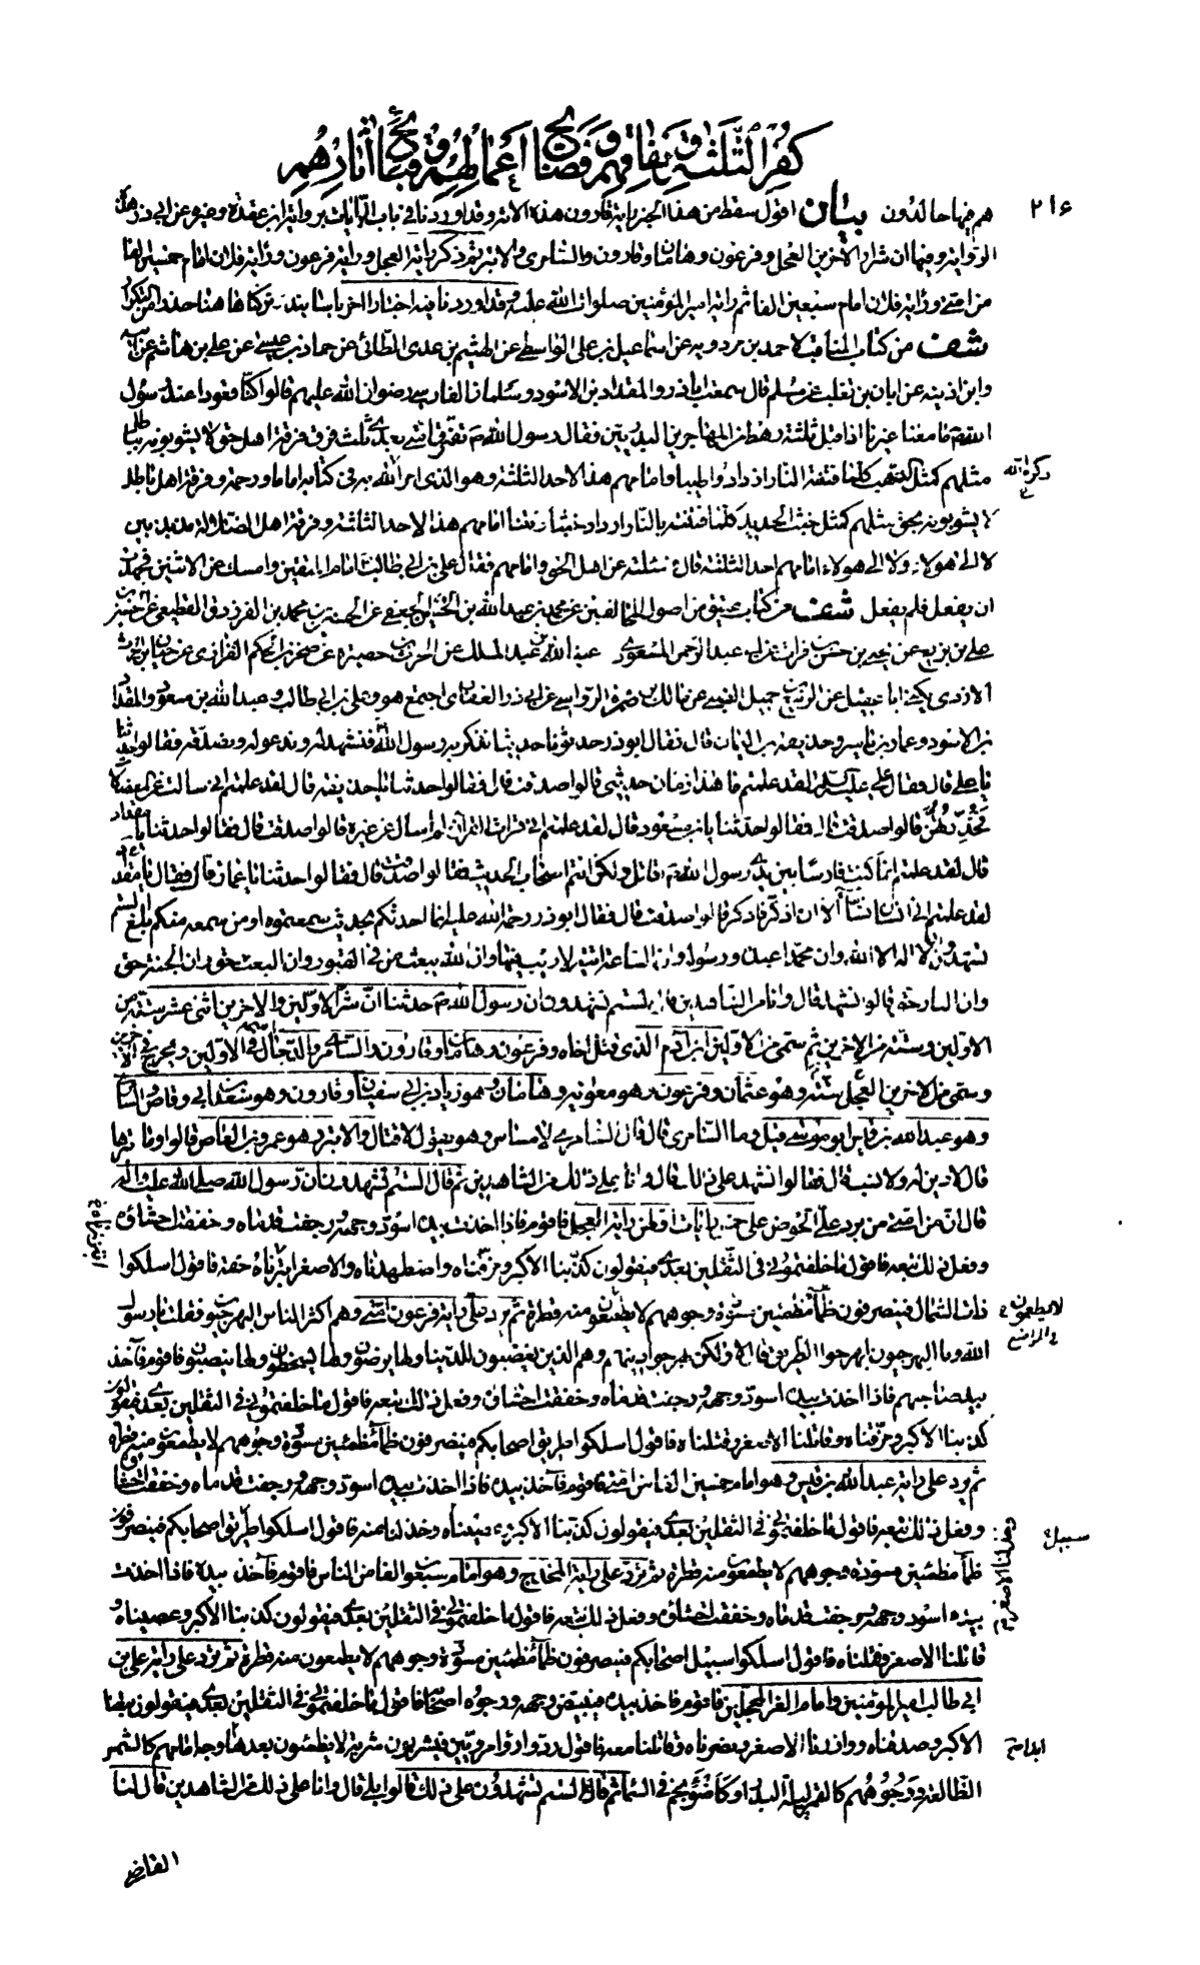 كفر الثلثة و نفاقهم و فضائح أعمالهم و قبائح آثارهم
٢١۶
هم فيها خالدون بيان اقول سقط من هذا الخبر راية قارون هذه الامة وقد اوردنا في باب الرايات برواية ابن عقدة وغيره عن ابي ذر هذه
الرواية وفيها ان شرار الآخرين العجل وفرعون وهامان وقارون والسامري والابتر ثم ذكر راية العجل وراية فرعون وراية فلان امام خمسين الفا
من امتي وراية فلان امام سبعين الفا ثم راية امير المؤمنين صلوات الله عليه وقد اوردنا فيه اخبارا اخر باسانيد تركناها هنا حذرا من التكرار
شف من كتاب المناقب لاحمد بن مردويه عن اسماعيل بن علي الواسطي عن الهيثم بن عدي الطائي عن حماد بن عيسى عن علي بن هاشم عن ابيه
وابن اذينه عن ابان بن تغلب عن مسلم قال سمعت اباذر والمقداد بن الاسود وسلمان الفارسي رضوان الله عليهم قالوا كنا قعودا عند رسول
الله ص ما معنا غيرنا اذ اقبل ثلثة رهط من المهاجرين البدريين فقال رسول الله ص تفترق امتي بعدي ثلث فرق فرقة اهل حق لا يشوبونه بباطل
مثلهم كمثل الذهب كلما فتنته النار ازداد طيبا وامامهم هذا لاحد الثلثة وهو الذي امر الله به في كتابه اماما ورحمة وفرقة اهل باطل
ذكره الله
لا يشوبونه بحق مثلهم كمثل خبث الحديد كلما فتنته بالنار ازداد خبثا ونتنا امامهم هذا لاحد الثلثة وفرقة اهل الضلالة مذبذبين
لا الى هؤلاء ولا الى هؤلاء امامهم احد الثلثة قال فسئلته عن اهل الحق وامامهم فقال علي بن ابي طالب امام المتقين وامسك عن الاثنين فجهدت
ان يفعل فلم يفعل شف من كتاب عتيق من اصول المخالفين عن محمد بن عبد الله بن الحسين الجعفي عن الحسين بن محمد بن الفرزدق القطيعي عن الحسين بن
علي بن بزيع عن يحيى بن حسن بن فرات عن ابي عبد الرحمن المسعودي عبد الله بن عبد الملك عن الحرث بن حصيرة عن صخر بن الحكم الفزاري عن حيان بن الحرث
الازدي يكنى ابا عقيل عن الربيع بن جميل الضبي عن مالك بن ضمرة الرواسي عن ابي ذر الغفاري اجتمع هو وعلي بن ابي طالب وعبد الله بن مسعود والمقداد
بن الاسود وعمار بن ياسر وحذيفة بن اليمان قال فقال ابو ذر حدثونا حديثا نذكر به رسول الله ص فنشهد له وندعو له ونصدقه فقالوا حدثنا
يا علي قال فقال علي عليه السلم لقد علمتم ما هذا زمان حديثي قالوا صدقت قال فقالوا حدثنا يا حذيفة قال لقد علمتم اني سالت عن المعضلات
فحذرتهن قالوا صدقت قال فقالوا حدثنا يا ابن مسعود قال لقد علمتم اني قرات القران لم اسال عن غيره قالوا صدقت قال فقالوا حدثنا يا مقداد
قال لقد علمتم انما كنت فارسا بين يدي رسول الله ص اقاتل ولكن انتم اصحاب الحديث فقالوا صدقت قال فقالوا حدثنا يا عمار قال فقال قد
لقد علمتم اني انسان نسآء الا ان اذكر فاذكر قالوا صدقت قال فقال ابو ذر رحمة الله عليه انما احدثكم بحديث سمعتموه او من سمعه منكم بلغ الستم
تشهدون ان لا اله الا الله وان محمدا عبده ورسوله وان الساعة آتية لا ريب فيها وان الله يبعث من في القبور وان البعث حق وان الجنة حق
وان النار حق قالوا نشهد قال وانا من الشاهدين قال الستم تشهدون ان رسول الله ص حدثنا ان شر الاولين والاخرين اثنى عشر ستة من
الاولين وستة من الاخرين ثم سمى من الاولين ابن آدم الذي قتل اخاه وفرعون وهامان وقارون والسامري والدجال اسمه في الاولين ويخرج في الاخرين
وسمى من الاخرين ستة العجل وهو عثمان وفرعون وهو معوية وهامان وهو زياد بن ابي سفيان وقارون وهو سعد بن ابي وقاص والسامري
وهو عبد الله بن قيس ابو موسى قيل وما السامري قال قال السامري لا مساس وهو يقول لا قتال والابتر وهو عمرو بن العاص قالوا وما ابترها
قال لا دين له ولا نسب قال فقالوا نشهد على ذلك قال وانا على ذلك من الشاهدين ثم قال الستم تشهدون ان رسول الله صلى الله عليه وآله
قال ان من امتي من يرد علي الحوض على خمس رايات اولهن راية العجل فاقوم فاذا اخذت بيده اسود وجهه ورجفت قدماه وخفقت احشاؤه
وفعل ذلك تبعه فاقول ما خلفتموني في الثقلين بعدي فيقولون كذبنا الاكبر ومزقناه واضطهدنا الاصغر وابتززناه حقه فاقول اسلكوا
ابتززناه خ
ذات الشمال فينصرفون ظمآ مظمئين مسودة وجوههم لا يطعمون منه قطرة ثم ترد علي راية فرعون امتي وهم اكثر الناس البهرجيون فقلت يا رسول
لا يطعمون
في المواضع
الله وما البهرجيون ابهرجوا الطريق قال لا ولكن بهرجوا دينهم وهم الذين يغضبون للدنيا ولها يرضون ولها يسخطون ولها ينصبون فاقوم فآخذ
بيد صاحبهم فاذا اخذت بيده اسود وجهه ورجفت قدماه وخفقت احشاؤه وفعل ذلك تبعه فاقول ما خلفتموني في الثقلين بعدي فيقولون
كذبنا الاكبر ومزقناه وقاتلنا الاصغر وقتلناه فاقول اسلكوا طريق اصحابكم فينصرفون ظمآ مظمئين مسودة وجوههم لا يطعمون منه قطرة
ثم ترد علي راية عبد الله بن قيس وهو امام خمسين الفا من امتي فاقوم فآخذ بيده فاذا اخذت بيده اسود وجهه ورجفت قدماه وخفقت احشاؤه
وفعل ذلك تبعه فاقول ما خلفتموني في الثقلين بعدي فيقولون كذبنا الاكبر وعصيناه وخذلنا عنه فاقول اسلكوا طريق اصحابكم فينصرفون
سبيل
خذلنا الاصغر
ظمآ مظمئين مسودة وجوههم لا يطعمون منه قطرة ثم ترد علي راية المخدج وهو امام سبعين الفا من الناس فاقوم فآخذ بيده فاذا اخذت
بيده اسود وجهه ورجفت قدماه وخفقت احشاؤه وفعل ذلك تبعه فاقول ما خلفتموني في الثقلين بعدي فيقولون كذبنا الاكبر وعصيناه و
قاتلنا الاصغر وقتلناه فاقول اسلكوا سبيل اصحابكم فينصرفون ظمآ مظمئين مسودة وجوههم لا يطعمون منه قطرة ثم ترد علي راية علي بن
ابي طالب امير المؤمنين وامام الغر المحجلين فاقوم فاخذ بيده فيبيض وجهه ووجوه اصحابه فاقول ما خلفتموني في الثقلين بعدي فيقولون تبعنا
الاكبر وصدقناه ووازرنا الاصغر ونصرناه وقاتلنا معه فاقول ردوا رواء مرويين فيشربون شربة لا يظمئون بعدها وجه امامهم كالشمس
ابدا خ
الطالعة ووجوههم كالقمر ليلة البدر او كأضوء نجم في السماء ثم قال الستم تشهدون على ذلك قالوا بلى قال وانا على ذلك من الشاهدين قال لنا
القاضي